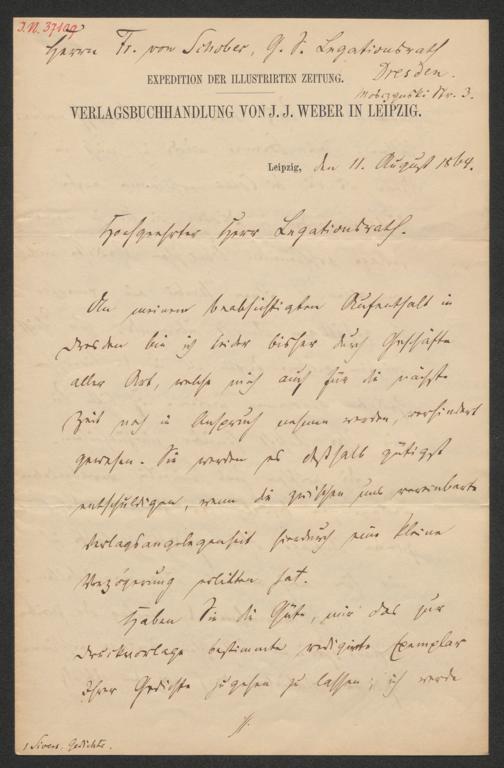 I.N. 37100
Herrn Fr. von Schober, G. S. Legationsrath
Dresden.
EXPEDITION DER ILLUSTRIRTEN ZEITUNG.
Nr. 3.
VERLAGSBUCHHANDLUNG VON J. J. WEBER IN LEIPZIG.
Leipzig, den 11. August 1864.
Hochgeehrter Herr Legationsrath.
An meinem beabsichtigten Aufenthalt in
Dresden bin ich leider bisher durch Geschäfte
aller Art, welche mich auch für die nächste
Zeit noch in Anspruch nehmen werden, verhindert
gewesen. Sie werden es deßhalb gütigst
entschuldigen, wenn die zwischen uns vereinbarte
Verlagsangelegenheit hierdurch eine kleine
Verzögerung erlitten hat.
Haben Sie die Güte, mir das zur
Druckvorlage bestimmte redigirte Exemplar
Ihrer Gedichte zugehen zu lassen; ich werde
Gedichte.